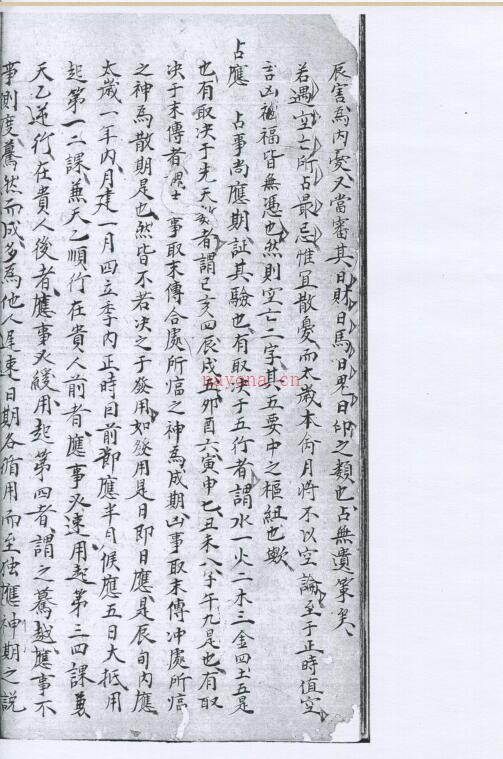 辰害為内憂又當審其日財日馬日鬼日印之類也占無遺筞矣
若遇空亡所占最忌惟宜散憂而太歲本命月將不以空論至于正時值空
言凶禍福皆無憑也然則空亡二字其五要中之樞紐也歟
占應　占事尚應期証其驗也有取決于五行者謂水一火二木三金四土五是
也有取決于先天者謂巳亥四辰戌五卯酉六寅申七丑未八子午九是也有取
決于末傳者謂士事取末傳合處所臨之神為成期凶事取末傳冲處所臨
之神為散期是也然皆不若決之于發用如發用是日即日應是辰旬内應
太歲一年内月建一月四立季内正時日前節應半月候應五日大抵用
起第一二課兼天乙順行在貴人前者應事必速用起第三四課兼
天乙逆行在貴人後者應事必緩用起第四者謂之驀越應事不
事測度驀然而成多為他人尾速日期各循用而至独應神期之説
nayona.cn